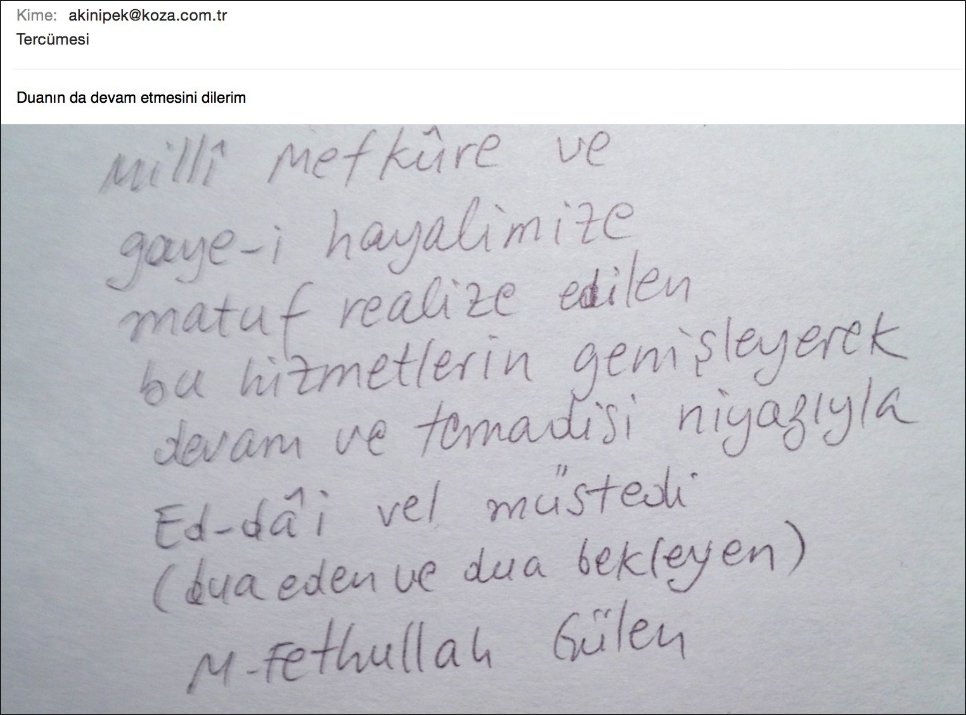 Kime: akinipek@koza.com.tr
Tercümesi
Duanın da devam etmesini dilerim
Millî Mefkûre ve
gaye-i hayalimize
matuf realize edilen
bu hizmetlerin genişleyerek
devam ve temadisi niyazıyla
Ed-dâ'i vel müstedi
(dua eden ve dua bekleyen)
M-Fethullah Gülen